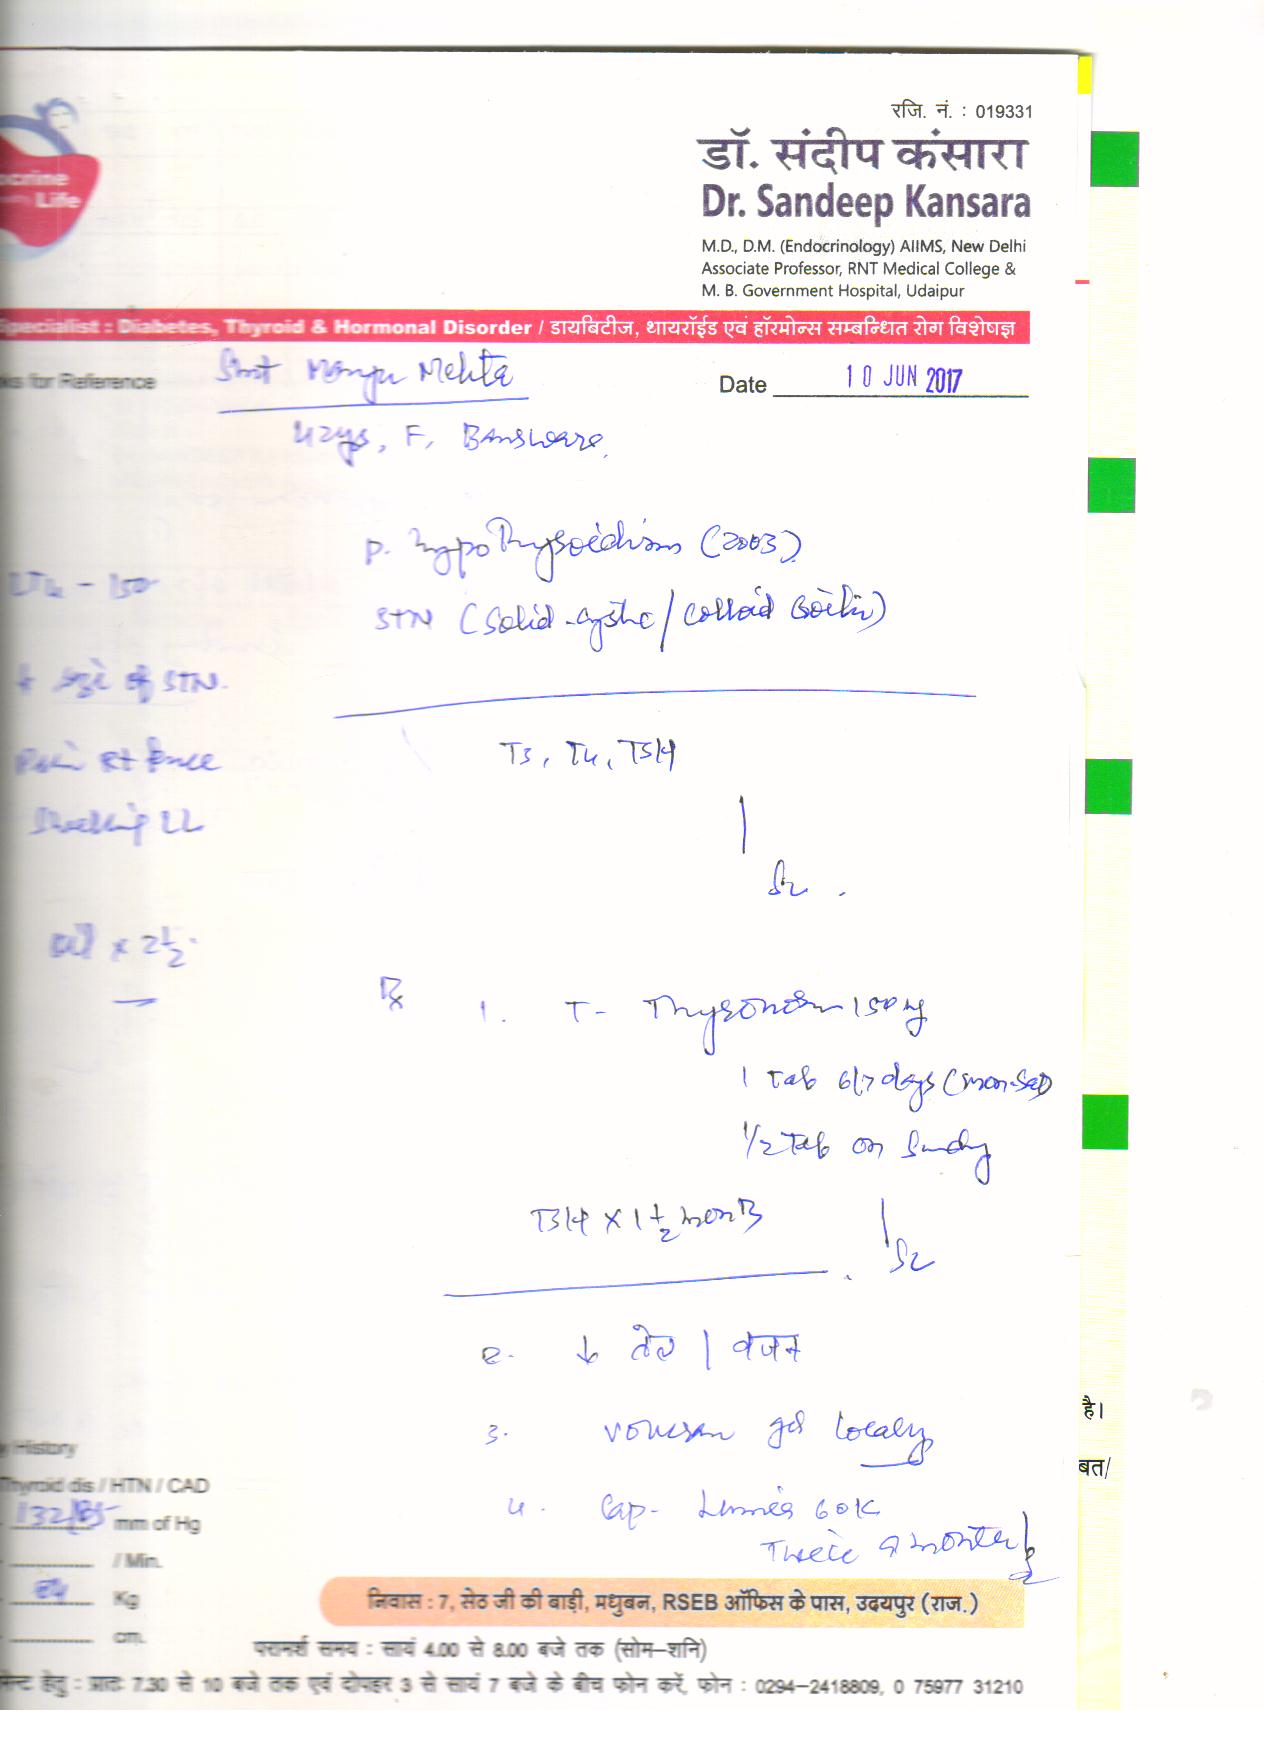 रजि. नं. : 019331
डॉ. संदीप कंसारा
Dr. Sandeep Kansara
M.D., D.M. (Endocrinology) AIIMS, New Delhi
Associate Professor, RNT Medical College &
M. B. Government Hospital, Udaipur
ocrine
Life
Specialist : Diabetes, Thyroid & Hormonal Disorder / डायबिटीज, थायरॉईड एवं हॉरमोन्स सम्बन्धित रोग विशेषज्ञ
ks for Reference
Smt Manju Mehta
Date 10 JUN 2017
42ys, F, Banswara
P. hypothyroidism (2003)
LT4 - 150
STN (solid-cystic / colloid goitre)
size of STN.
T3, T4, TSH
Pain Rt knee
Swelling LL
x 2½
Rx
1. T- Thyronorm 150 mcg
1 Tab 6/7 days (Mon-Sat)
1/2 Tab on Sunday
TSH x 1½ month
2. ↓ तेल / वजन
3. Voveran gel locally
है।
बत/
History
Thyroid dis / HTN / CAD
132/85 mm of Hg
4. Cap- 60K
Twice a month
/ Min.
Kg
cm.
निवास : 7, सेठ जी की बाड़ी, मधुबन, RSEB ऑफिस के पास, उदयपुर (राज.)
परामर्श समय : सायं 4.00 से 8.00 बजे तक (सोम-शनि)
हेतु : प्रातः 7.30 से 10 बजे तक एवं दोपहर 3 से सायं 7 बजे के बीच फोन करें, फोन : 0294-2418809, 0 75977 31210